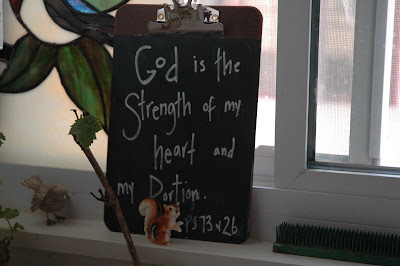 God is the
Strength of my
heart and
my Portion.
PS 73 v 26